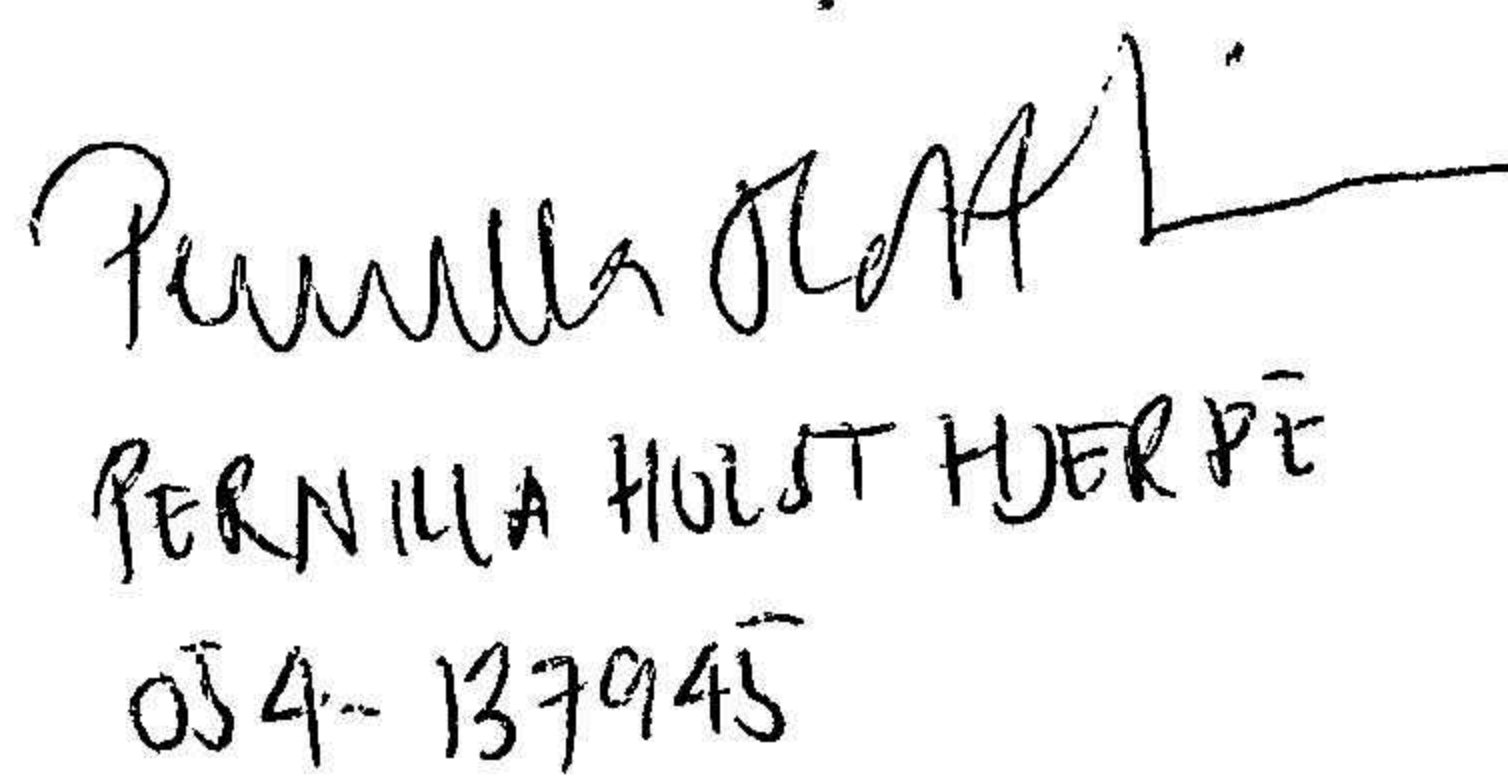 Pernilla
PERNILLA HOLST HJERPE
054-137945